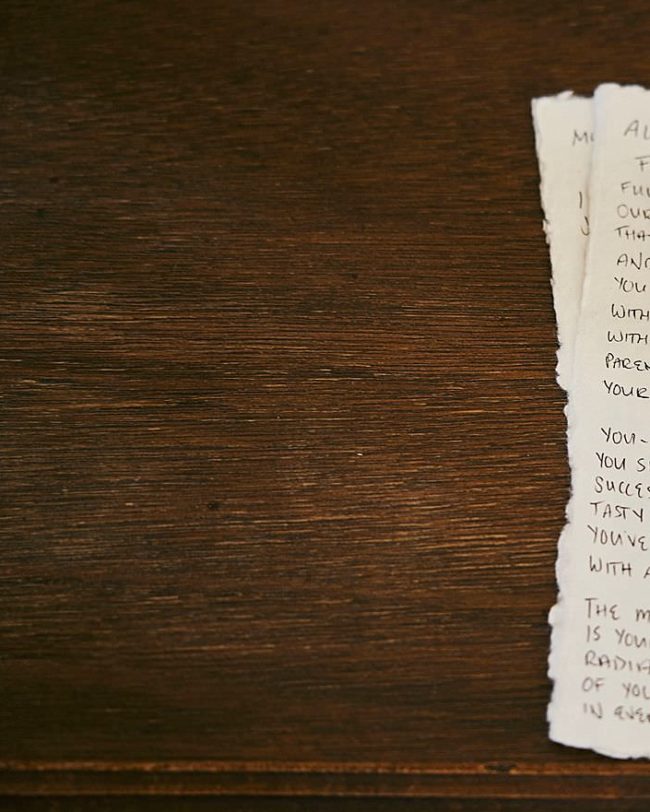 AL
F
FUL
OUR
THA
AND
YOU
WITH
WITH
PAREN
YOUR
YOU-
YOU S
SUCCES
TASTY
YOU'VE
WITH A
THE M
IS YOU
RADIA
OF YOU
IN EVE